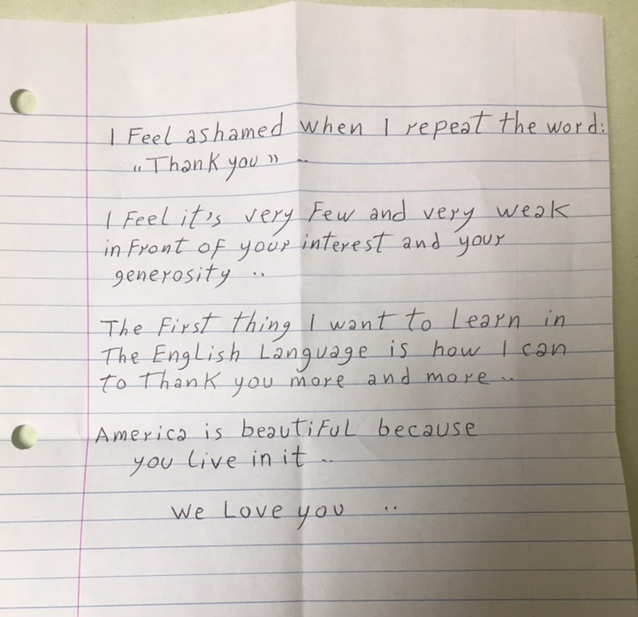 I Feel ashamed when I repeat the word:
"Thank you" ..
I Feel it's very Few and very weak
in Front of your interest and your
generosity ..
The First thing I want to Learn in
The English Language is how I can
to Thank you more and more ..
America is beautiful because
you Live in it ..
We Love you ..